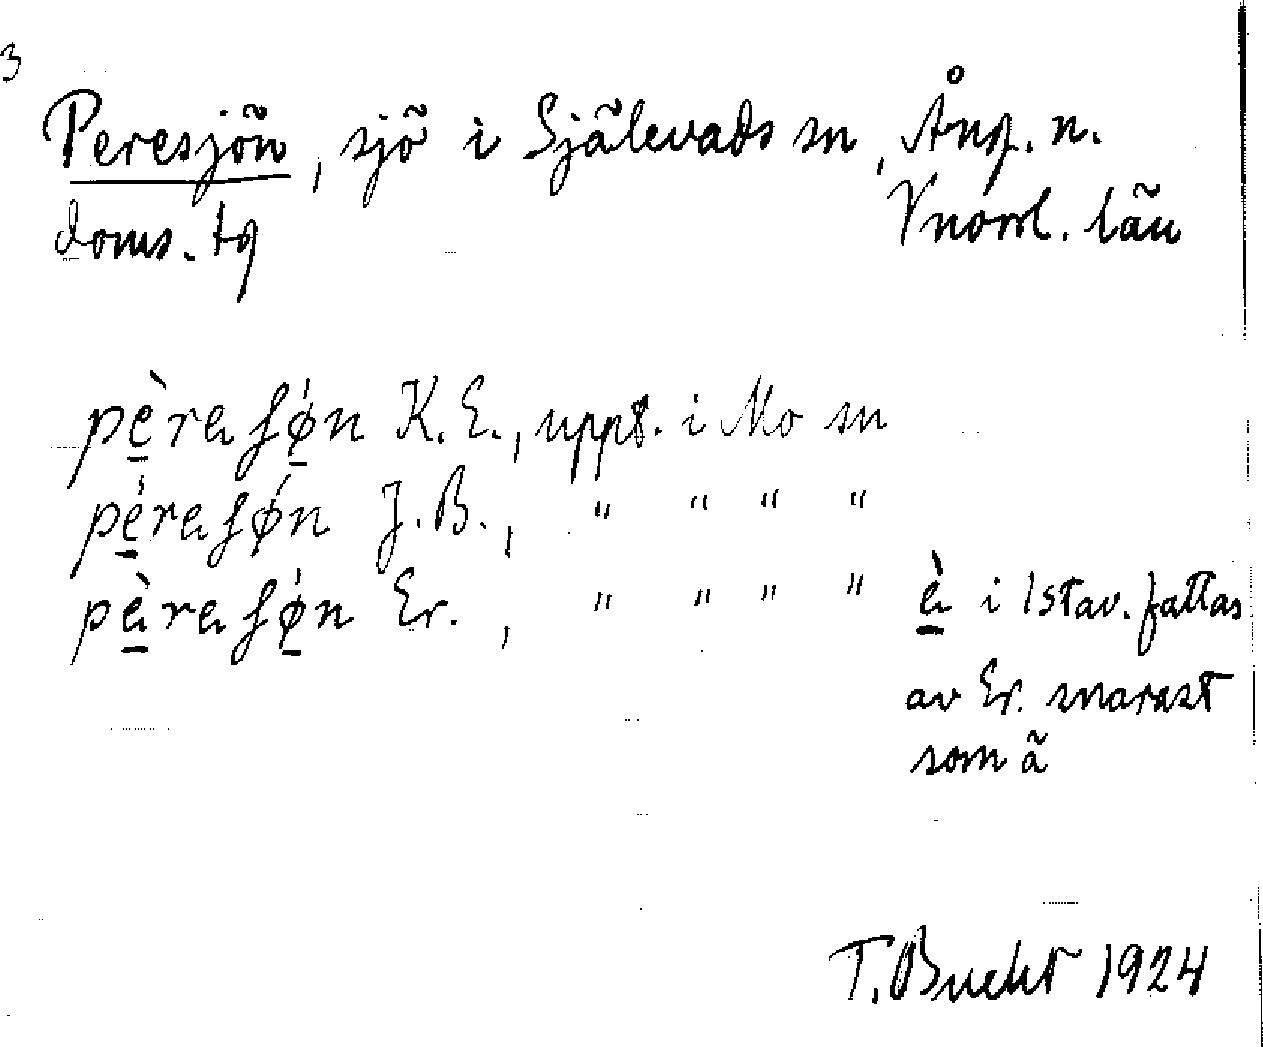 3
Peresjön, sjö i Själevads sn, Ång. n.
doms. tg Vnorrl. län
pe̠̊̀resøn K.E., uppt. i Mo sn
péresøn J.B., " " " "
pàresøn Er., " " " " è i 1 stav. fattas
av Er. snarast
som ä
T. Bucht 1924